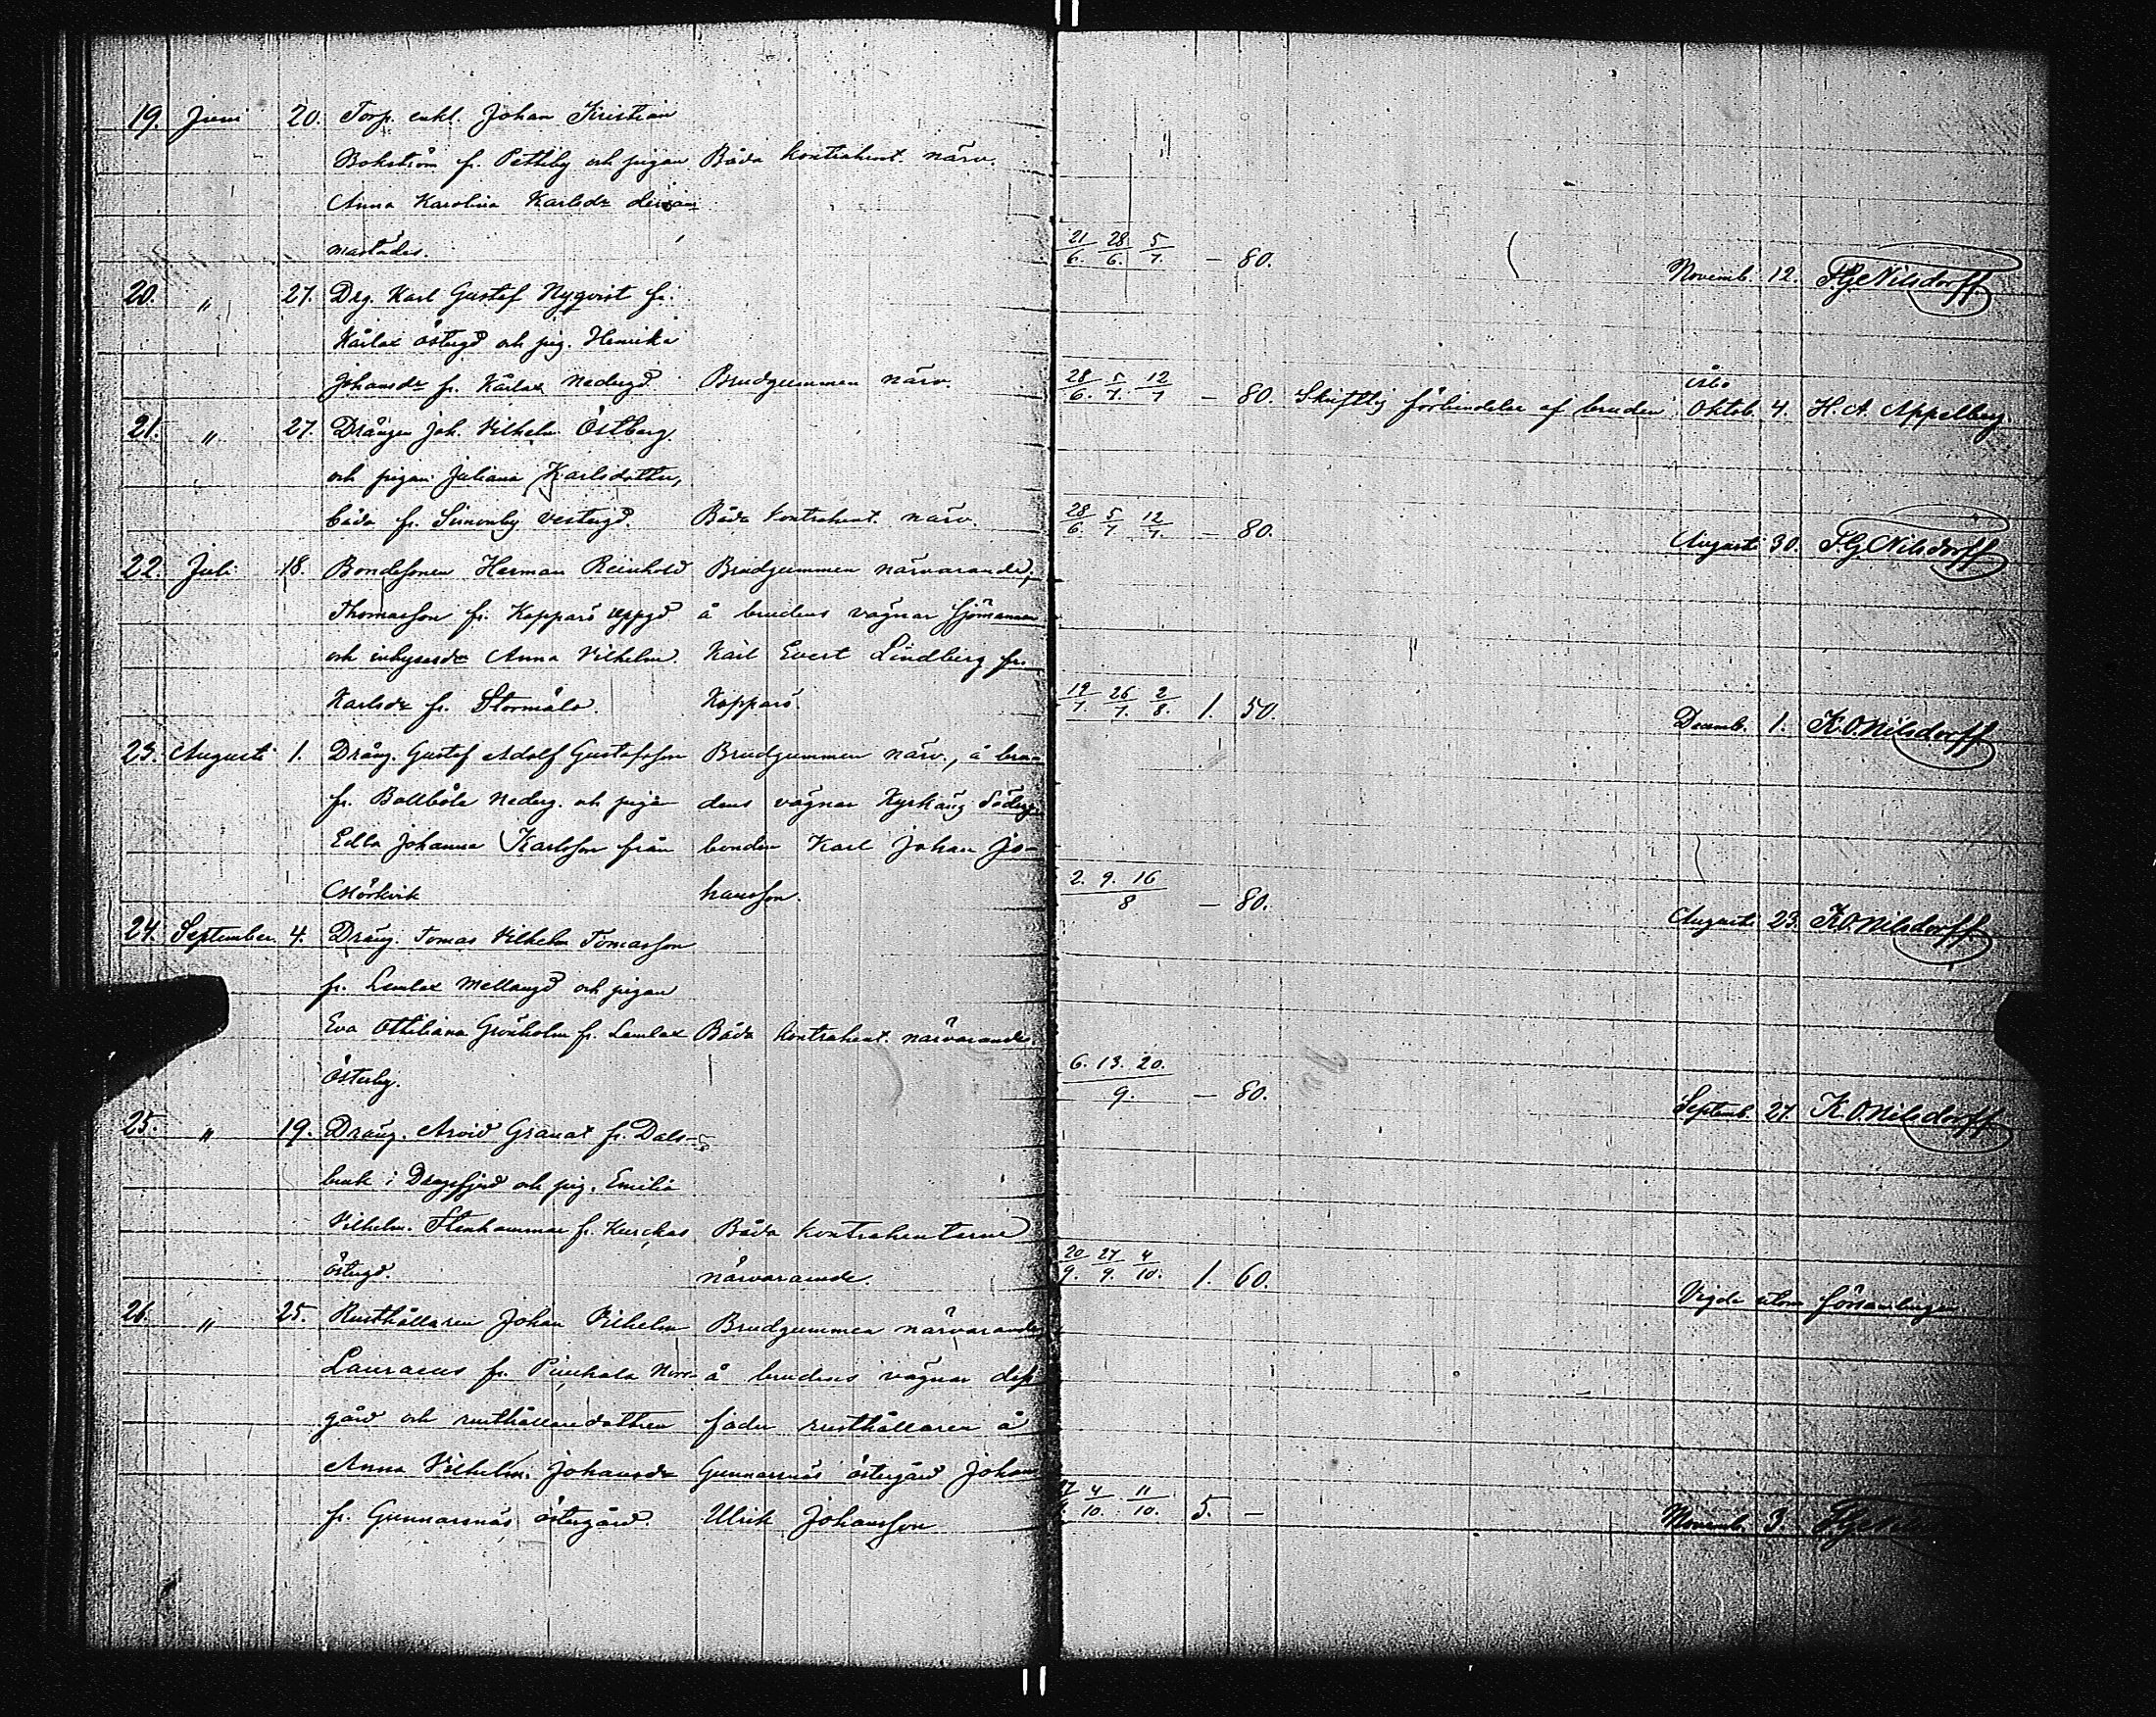 19. Juni 20. Torp. enkl. Johan Kristian
Bokström fr. Pettby och pigan Båda kontrahent. närv.
Anna Karolina Karlsdr
mastädes. 21/6. 28/6. 5/7. – 80. Novemb. 12. Nilsdorff
20. " 27. Drg. Karl Gustaf Nyqvist fr.
Kårlax Östergd och pig. Henrika
Johansdr fr. Kårlax Nedergd. Brudgummen närv. 28/6. 5/7. 12/7 – 80. Skriftlig förbindelse af bruden Oktob. 4. H. A. Appelberg
21. " 27. Drängen Joh. Vilhelm Östberg
och pigan Juliana Karlsdotter,
båda fr. Simonby Vestergd. Båda kontrahent. närv. 28/6. 5/7 12/7. – 80. Augusti 30. Nilsdorff
22. Juli 18. Bondesonen Herman Reinhold Brudgummen närvarande;
Thomasson fr. Kopparö Uppgd å brudens vägnar sjömannen
och inhysesdr Anna Vilhelm. Karl Evert Lindberg fr.
Karlsdr fr. Stormåla. Kopparö. 19/7 26/7. 2/8. 1. 50. Decemb. 1. K.O. Nilsdorff
23. Augusti 1. Dräng. Gustaf Adolf Gustafsson Brudgummen närv., å bru-
fr. Bollböle Nederg. och piga dens vägnar Söderg.
Edla Johanna Karlsson från bonden Karl Johan Jo-
Mörkvik hansson. 2. 9. 16/8 – 80. Augusti 23. K.O. Nilsdorff
24. September. 4. Dräng. Tomas Vilhelm Tomasson
fr. Lemlax Mellangd och pigan
Eva Ottiliana Grönholm fr. Lemlax Båda kontrahent. närvarande.
Österby. 6. 13. 20./9. – 80. Septemb. 27. K.O. Nilsdorff
25. " 19. Dräng. Arvid Granat fr. Dals-
bruk i Dragsfjerd och pig. Emilia
Vilhelm. Stenhammar fr. Kurckas Båda kontrahenterne
östergd. närvarande. 20/9. 27/9. 4/10. 1. 60. Vigde utom församlingen
26. " 25. Rusthållaren Johan Vilhelm Brudgummen närvarande,
Lauraeus fr. Puukala Norr- å brudens vägnar dess
gård och rusthållaredottren fader rusthållaren å
Anna Vilhelm. Johansdr Gunnarsnäs östergård Johan
fr. Gunnarsnäs östergård. Ulrik Johansson 4/10. 11/10. 5. – Novemb. 3.